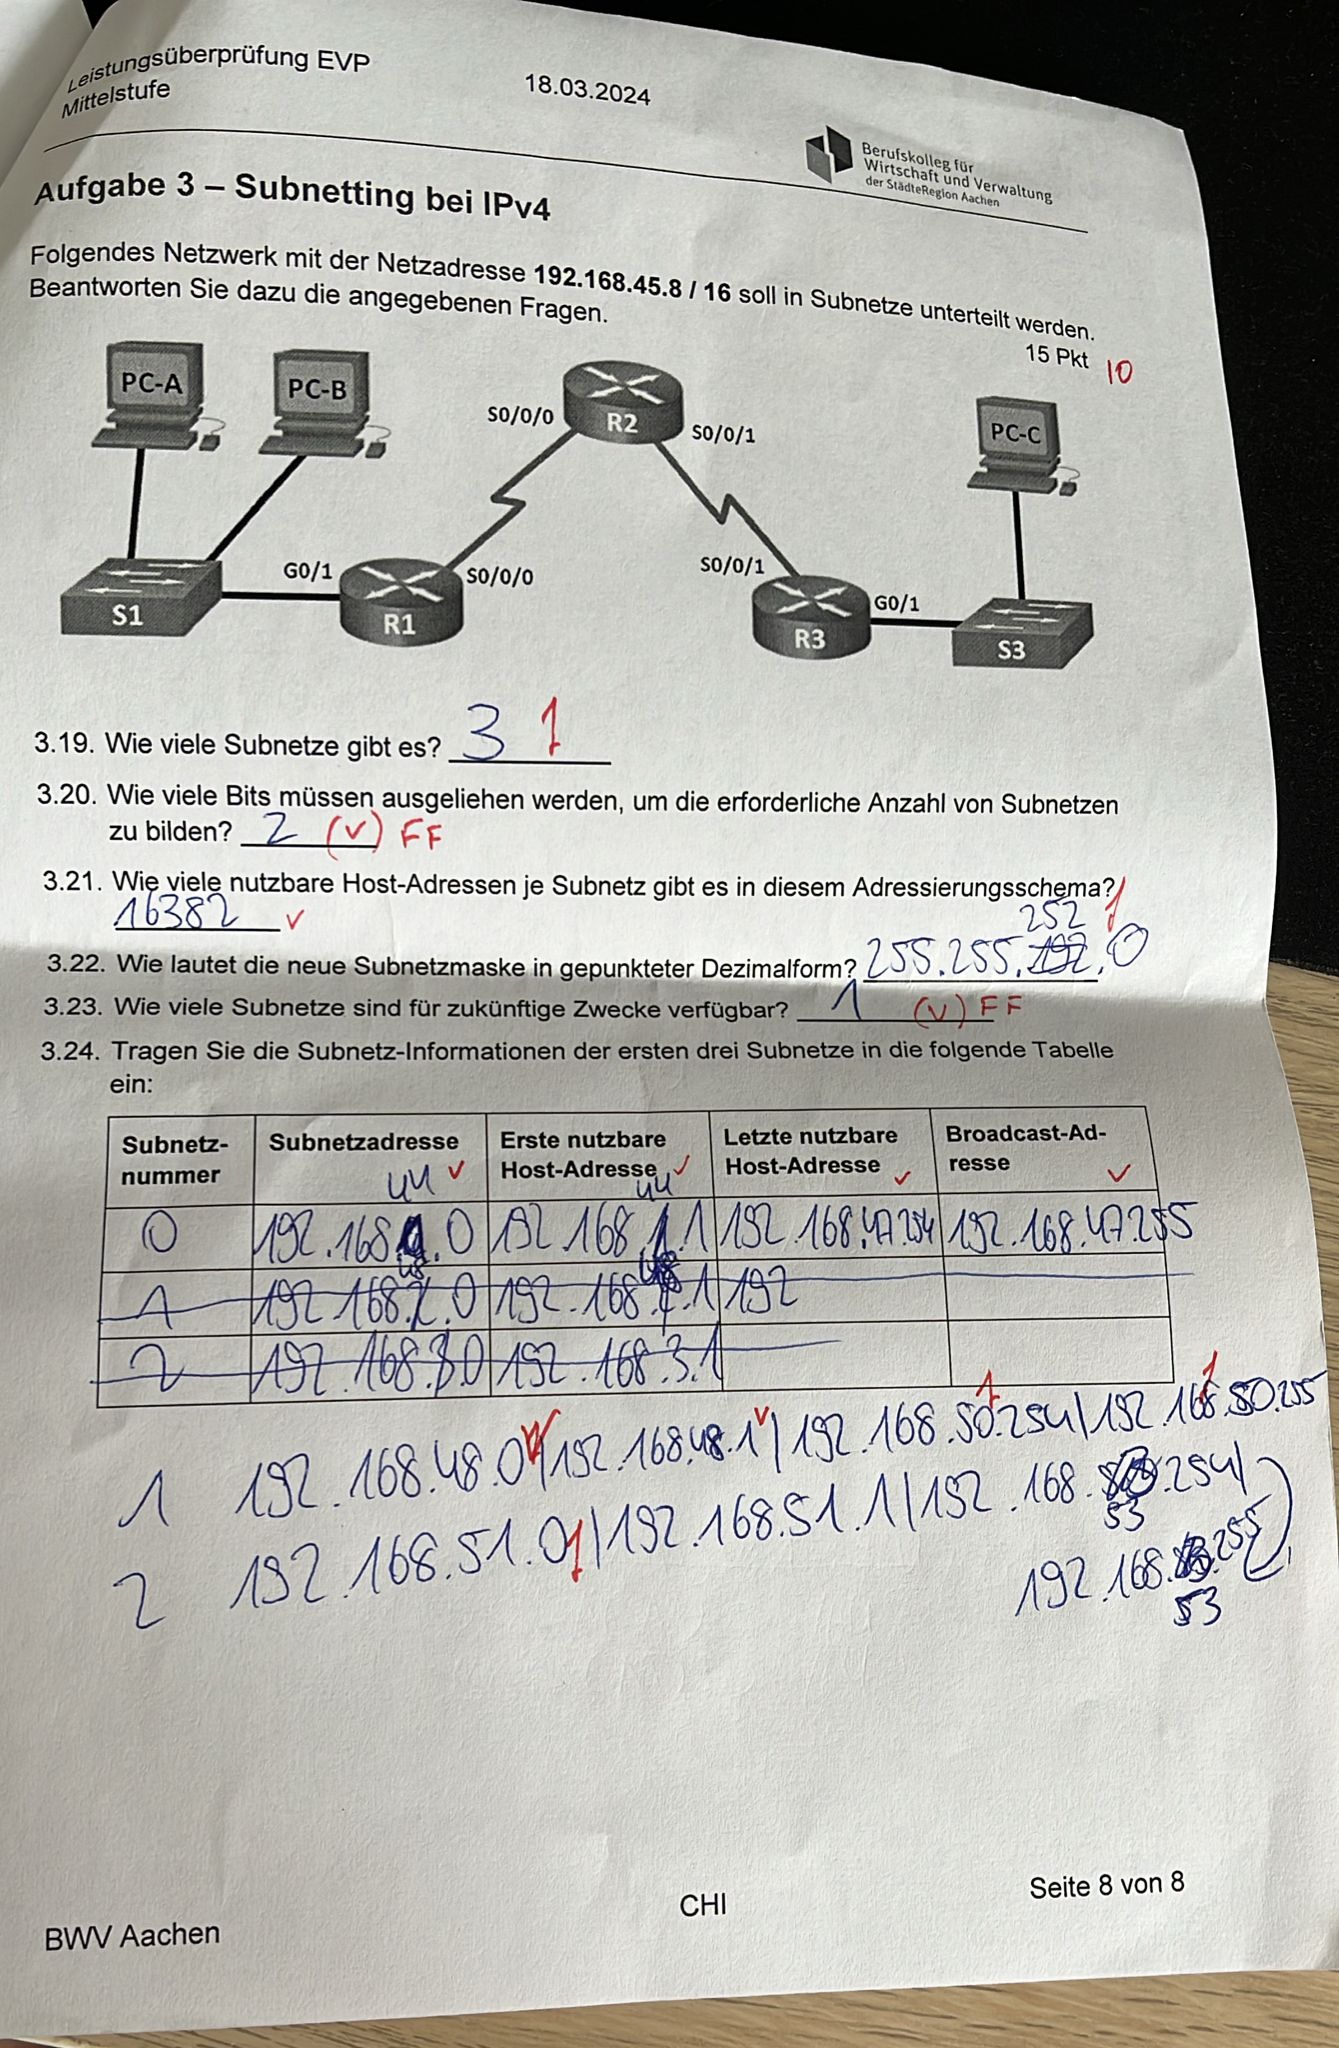 Leistungsüberprüfung EVP
Mittelstufe
18.03.2024
Berufskolleg für
Wirtschaft und Verwaltung
der StädteRegion Aachen
Aufgabe 3 – Subnetting bei IPv4
Folgendes Netzwerk mit der Netzadresse 192.168.45.8 / 16 soll in Subnetze unterteilt werden.
Beantworten Sie dazu die angegebenen Fragen.
15 Pkt 10
PC-A
PC-B
S0/0/0
R2
S0/0/1
PC-C
S1
G0/1
R1
S0/0/0
S0/0/1
R3
G0/1
S3
3.19. Wie viele Subnetze gibt es? 3 f
3.20. Wie viele Bits müssen ausgeliehen werden, um die erforderliche Anzahl von Subnetzen
zu bilden? 2 (v) FF
3.21. Wie viele nutzbare Host-Adressen je Subnetz gibt es in diesem Adressierungsschema?
16382 v
252 f
3.22. Wie lautet die neue Subnetzmaske in gepunkteter Dezimalform? 255.255.192.0
3.23. Wie viele Subnetze sind für zukünftige Zwecke verfügbar? 1 (v) FF
3.24. Tragen Sie die Subnetz-Informationen der ersten drei Subnetze in die folgende Tabelle
ein:
Subnetz-
nummer
Subnetzadresse v
Erste nutzbare
Host-Adresse v
Letzte nutzbare
Host-Adresse v
Broadcast-Ad-
resse v
44 44
0 192.168. .0 192.168.1.1 192.168.47.254 192.168.47.255
48 48
1 192.168.2.0 192.168. .1 192
2 192.168.3.0 192.168.3.1
1 192.168.48.0 v | 192.168.48.1 v | 192.168.50.254 f | 192.168.50.255 f
2 192.168.51.0 f | 192.168.51.1 | 192.168. .254 |
53
192.168. .255
53
BWV Aachen
CHI
Seite 8 von 8